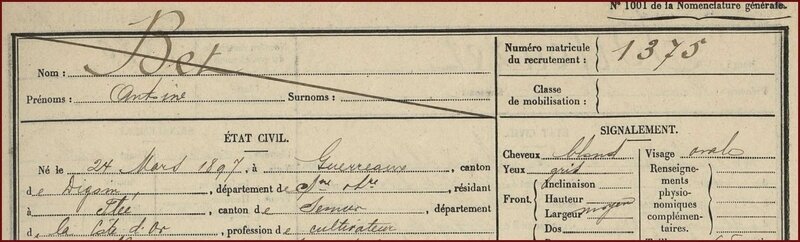 N° 1001 de la Nomenclature générale.
Nom : Bet
Prénoms : Antoine Surnoms :
Numéro matricule du recrutement : 1375
Classe de mobilisation :
ÉTAT CIVIL.
Né le 24 Mars 1897, à Guerreaux, canton
de Digoin, département de Sne Lre, résidant
à, canton de Semur, département
de la Côte d'Or, profession de cultivateur
SIGNALEMENT.
Cheveux blond Visage ovale
Yeux gris
Front. Inclinaison
Hauteur
Largeur moyen
Dos
Renseignements physionomiques complémentaires.